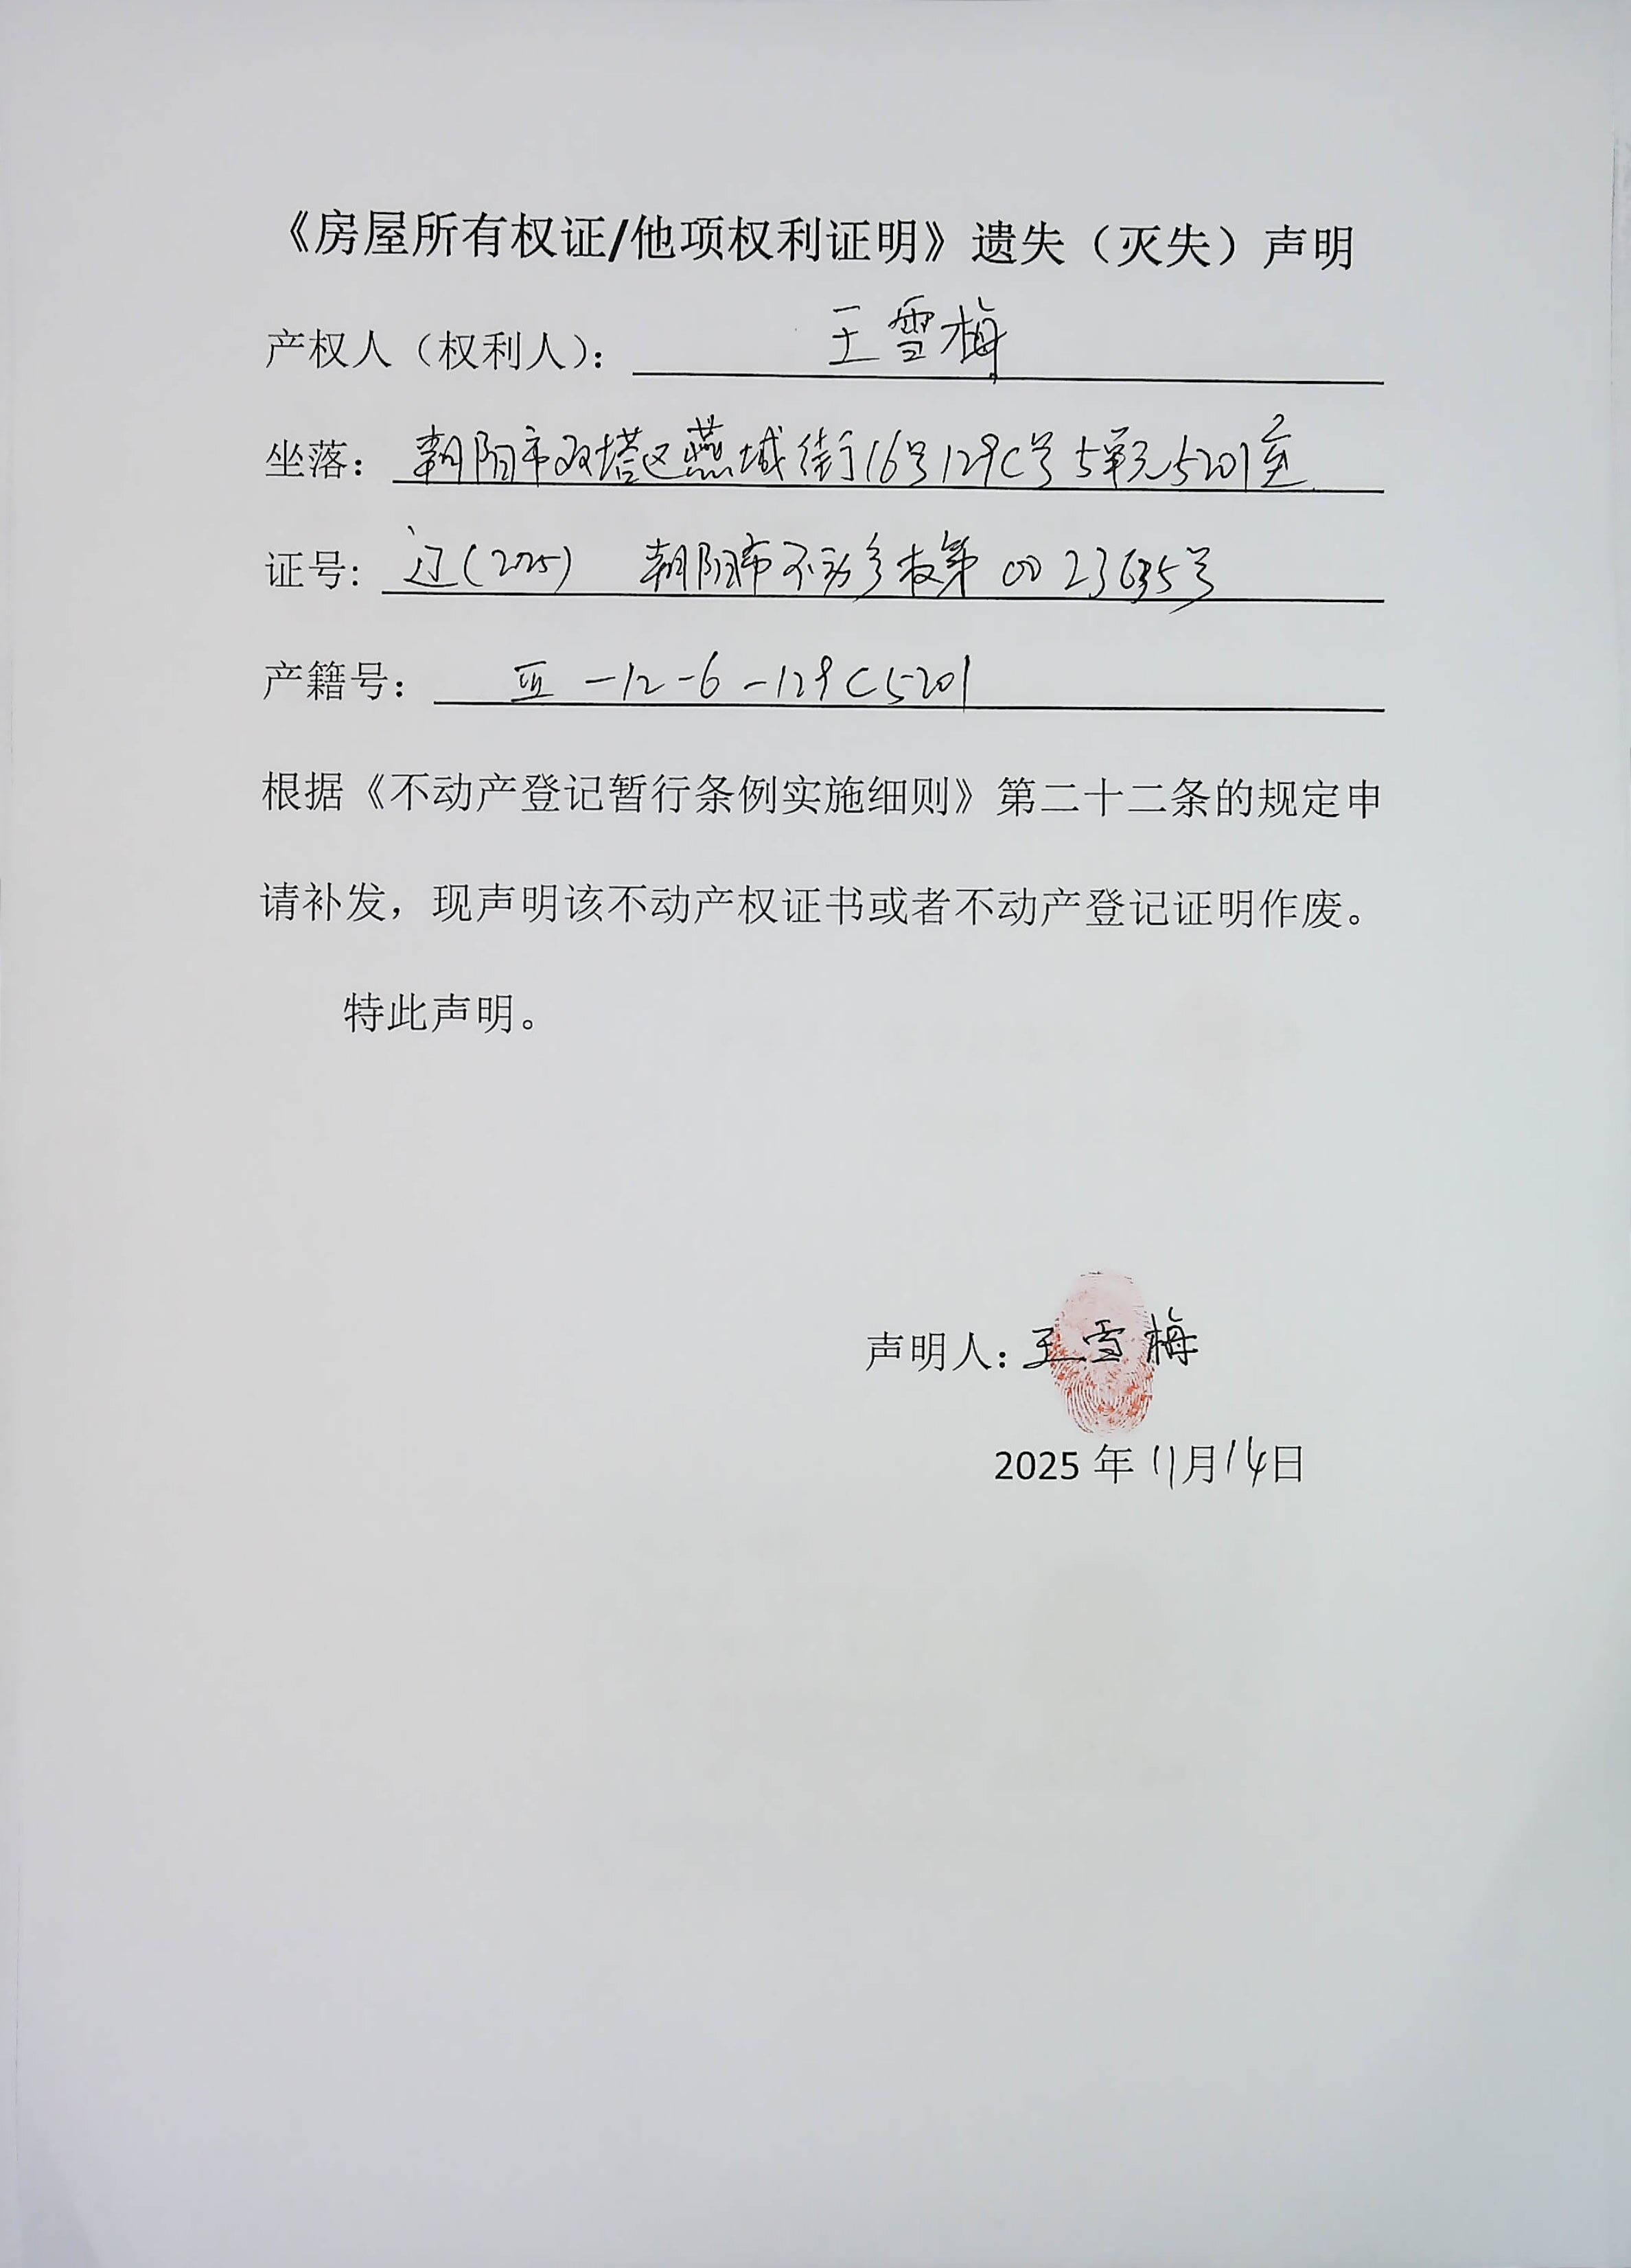 《房屋所有权证/他项权利证明》遗失（灭失）声明
产权人（权利人）： 王雪梅
坐落： 朝阳市双塔区燕城街16号129C号5单元5201室
证号: 辽(2025) 朝阳市不动产权第0023635号
产籍号： Ⅲ-12-6-129C5201
根据《不动产登记暂行条例实施细则》第二十二条的规定申
请补发，现声明该不动产权证书或者不动产登记证明作废。
特此声明。
声明人：王雪梅
2025年11月14日